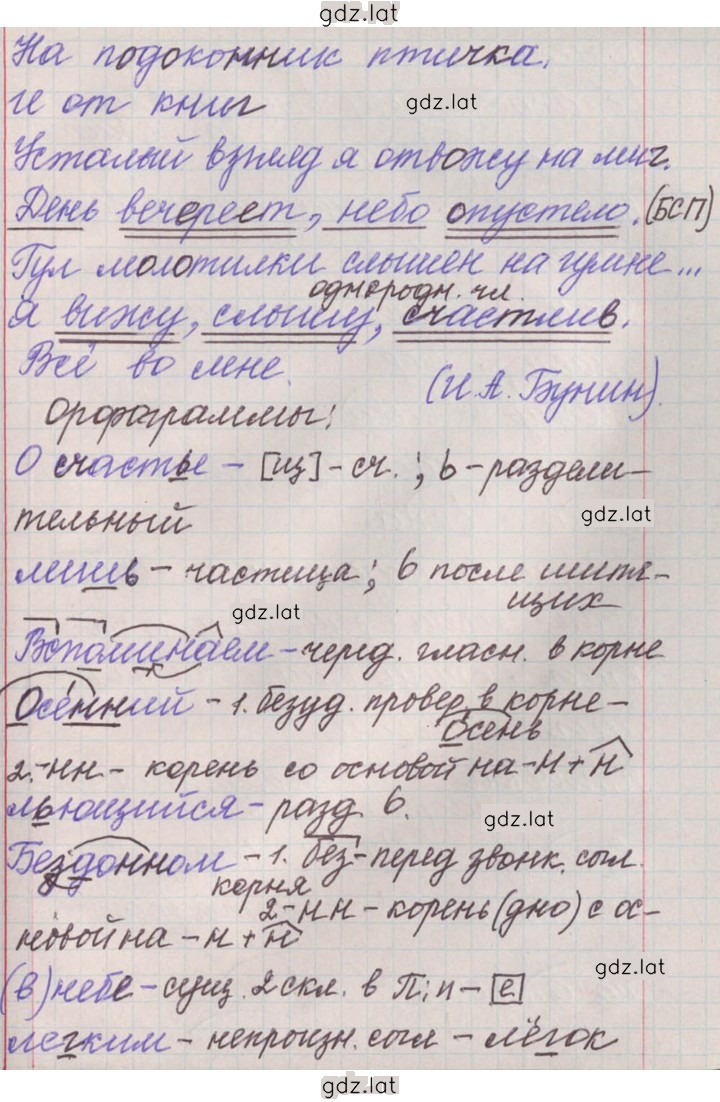 gdz.lat
На подоконник птичка.
И от книг
gdz.lat
Усталый взгляд я отвожу на миг.
День вечереет, небо опустело. (БСП)
Гул молотилки слышен на гумне...
однородн. чл.
Я вижу, слышу, счастлив.
Всё во мне.
(И. А. Бунин).
Орфограммы:
О счастье - [щ] - сч. ; ь - раздели-
тельный
gdz.lat
лишь - частица; ь после шипя-
щих
gdz.lat
Вспоминаем - черед. гласн. в корне
Осенний - 1. безуд. провер. в корне -
осень
2. -нн- корень со основой на -н + н
льющийся - разд. ь.
gdz.lat
Бездонном - 1. без- перед звонк. сыл.
корня
2 -нн - корень (дно) с ос-
новой на - н + н
gdz.lat
(в) небе - сущ. 2 скл. в П. п - е
легким - непроизн. сыл - лёгок
gdz.lat